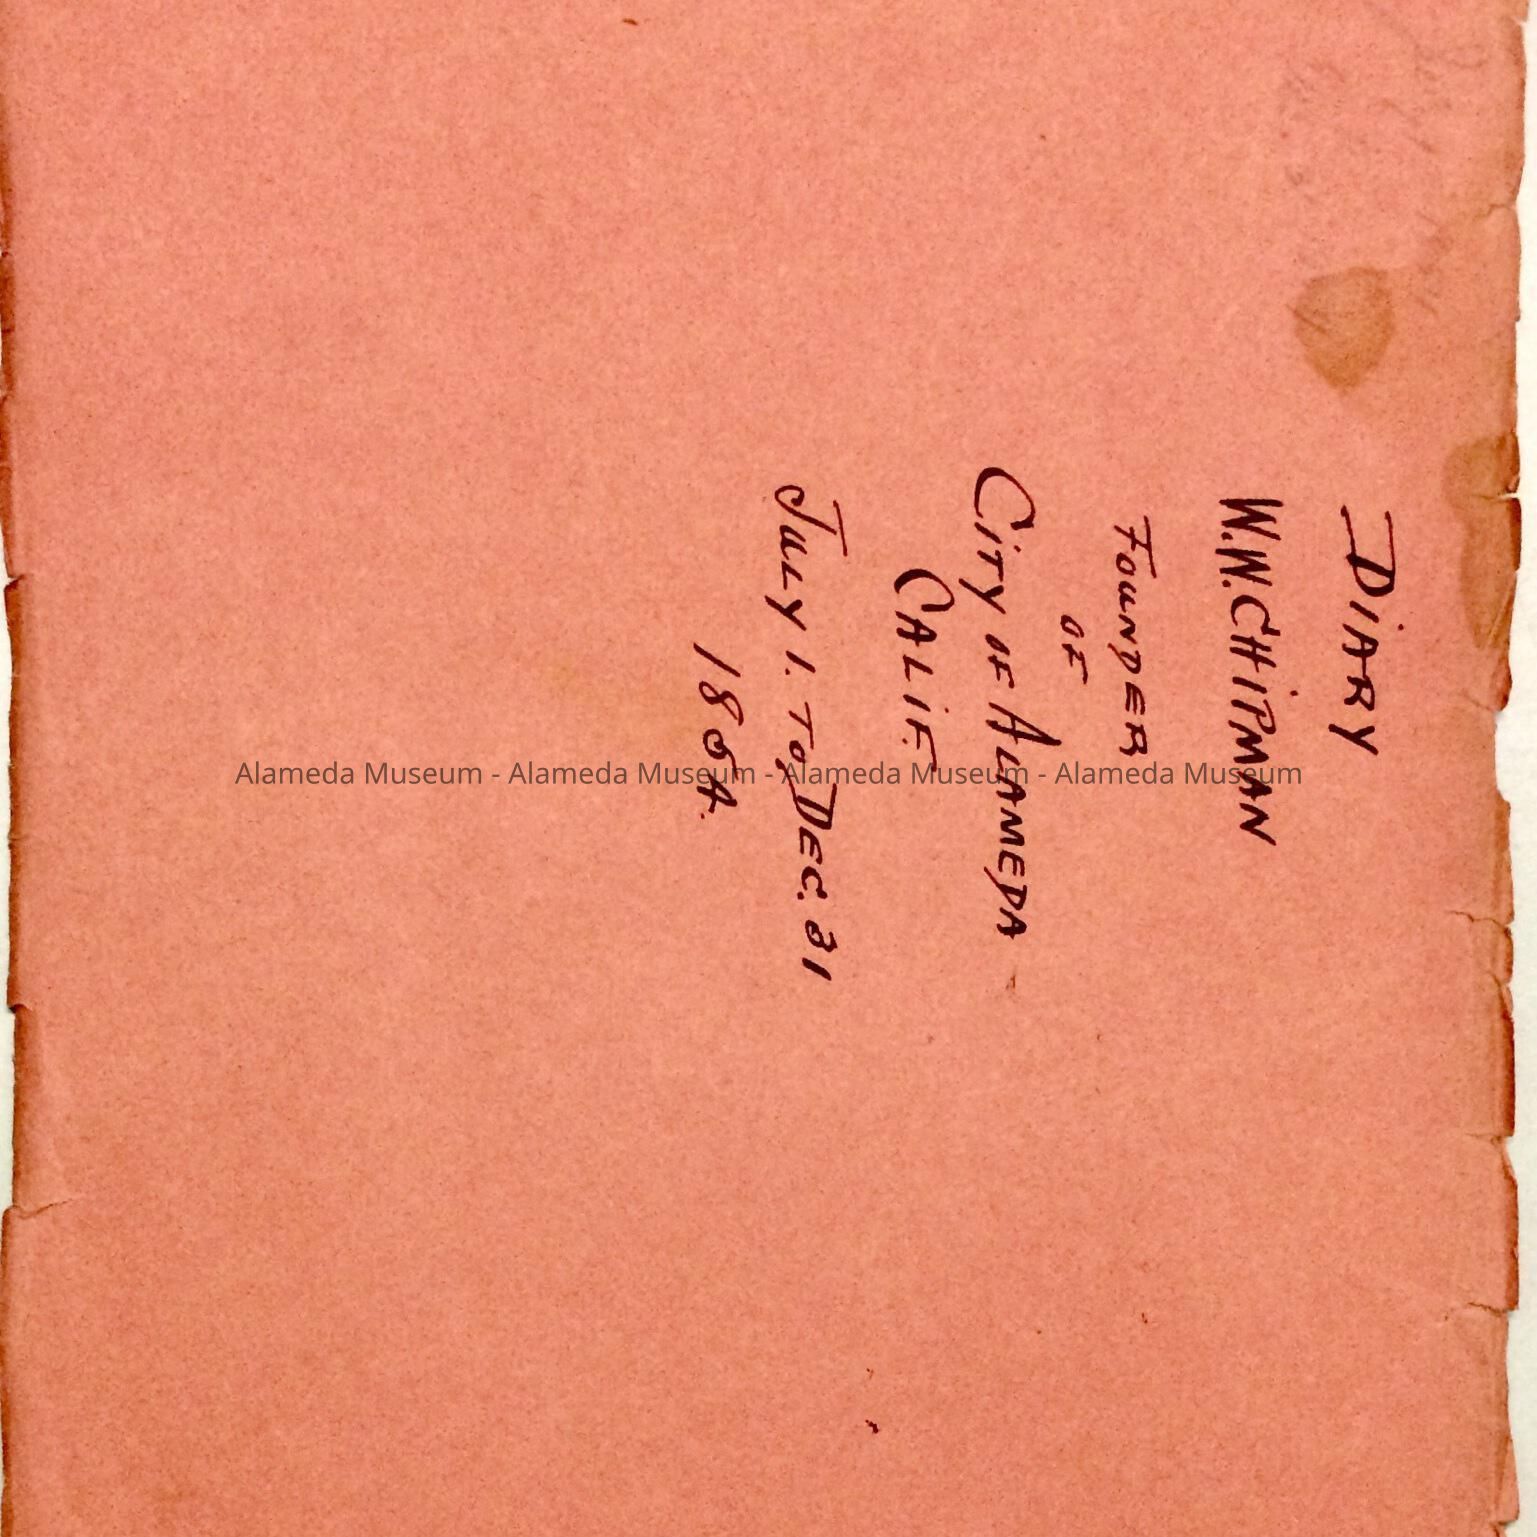 DIARY
W.W. CHIPMAN
FOUNDER
OF
CITY OF ALAMEDA
CALIF.
JULY 1. TO DEC. 31
1854.
Alameda Museum - Alameda Museum - Alameda Museum - Alameda Museum